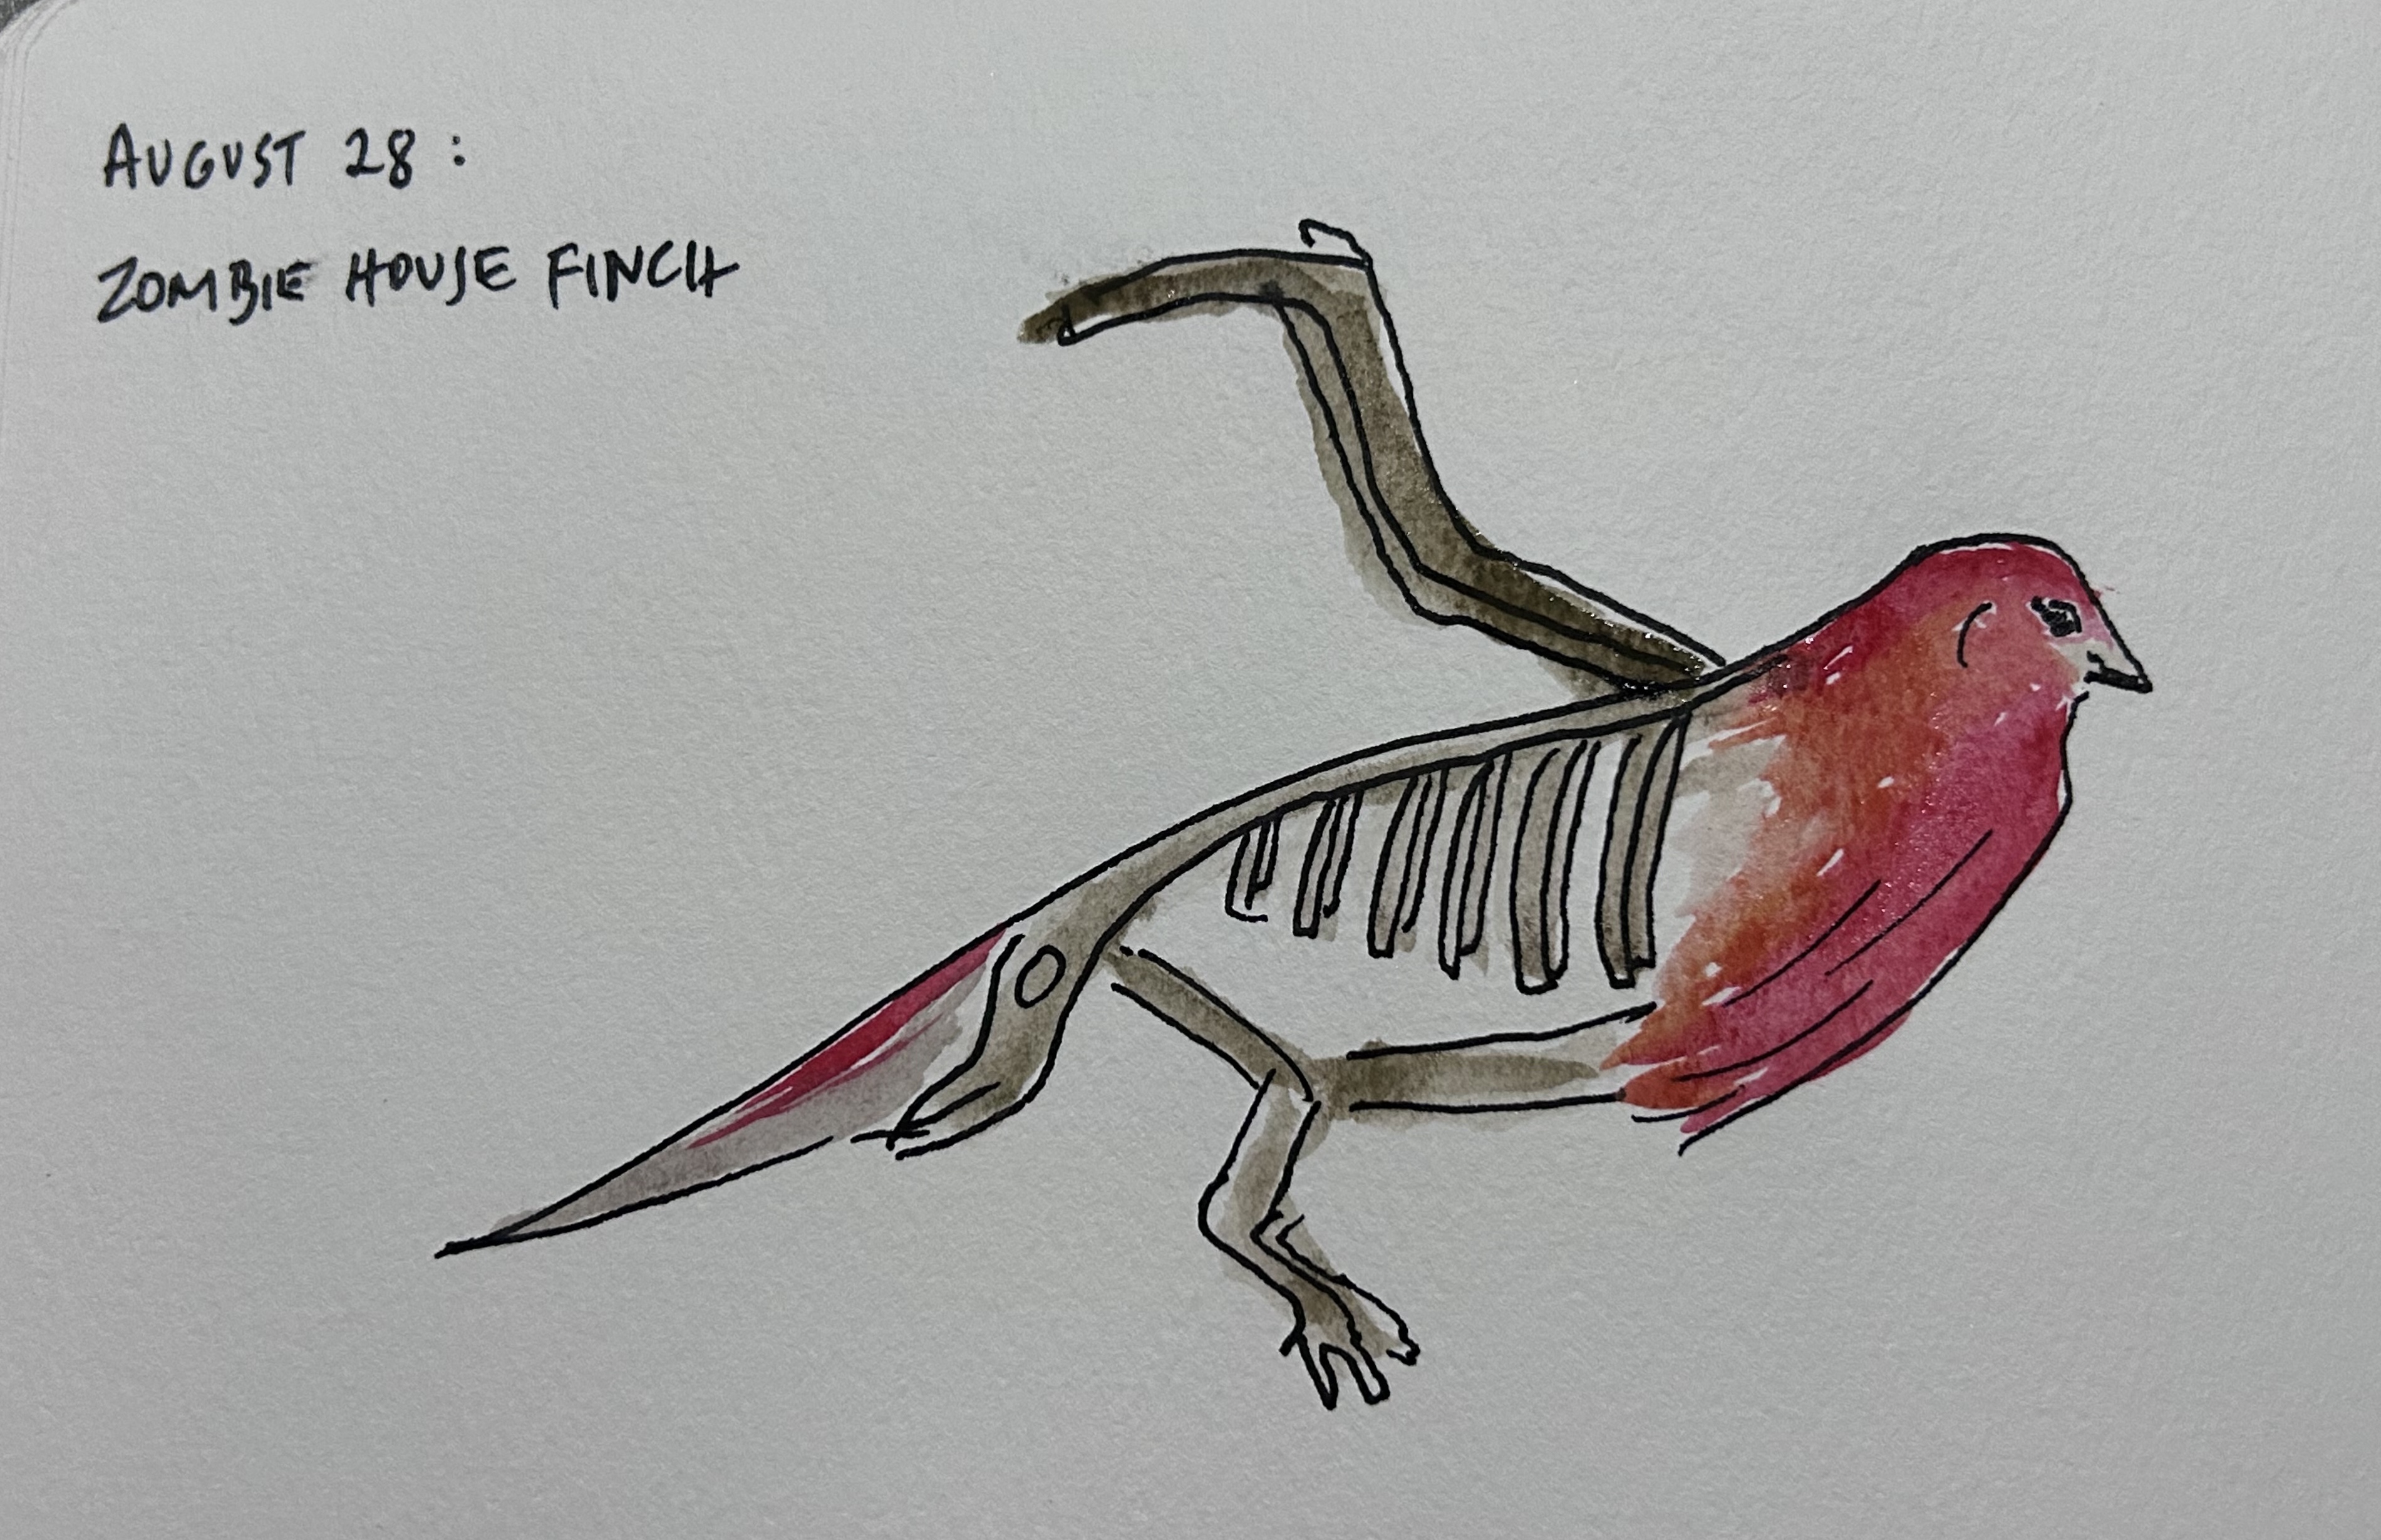 AUGUST 28:
ZOMBIE HOUSE FINCH